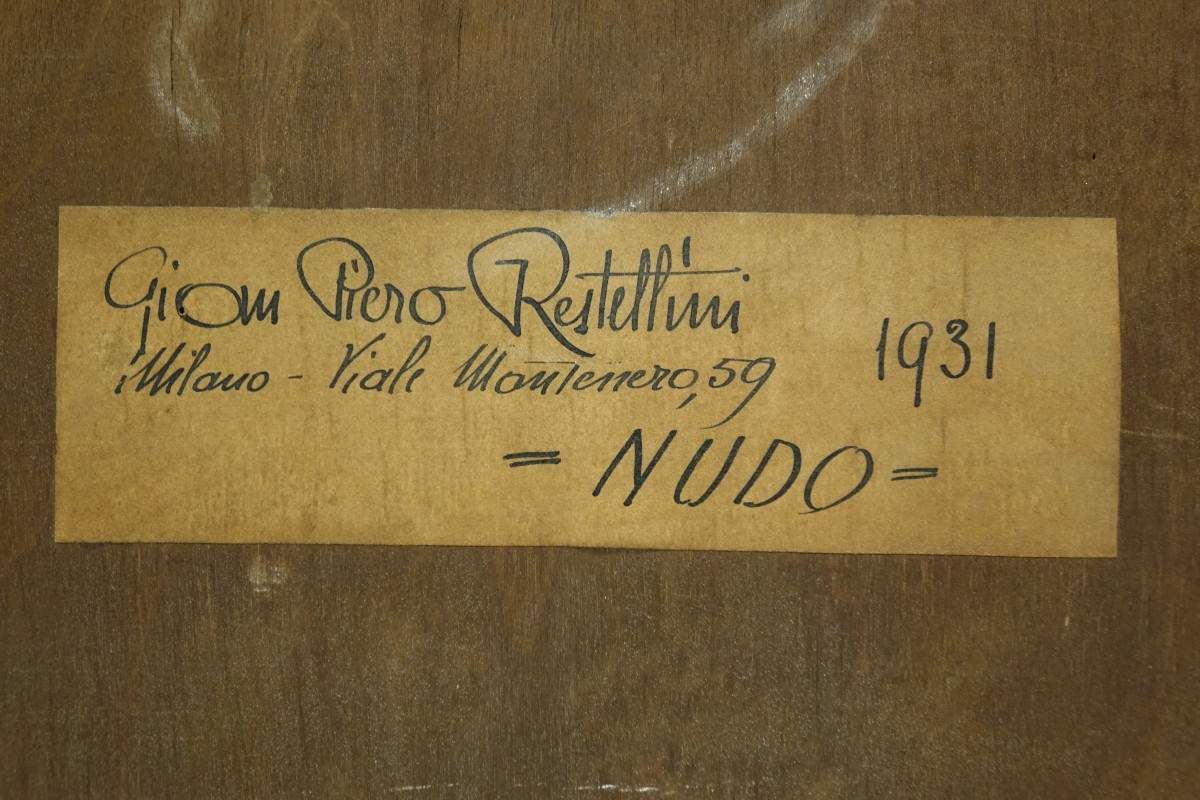 Gian Piero Restellini
Milano - Viale Montenero, 59
1931
= NUDO =